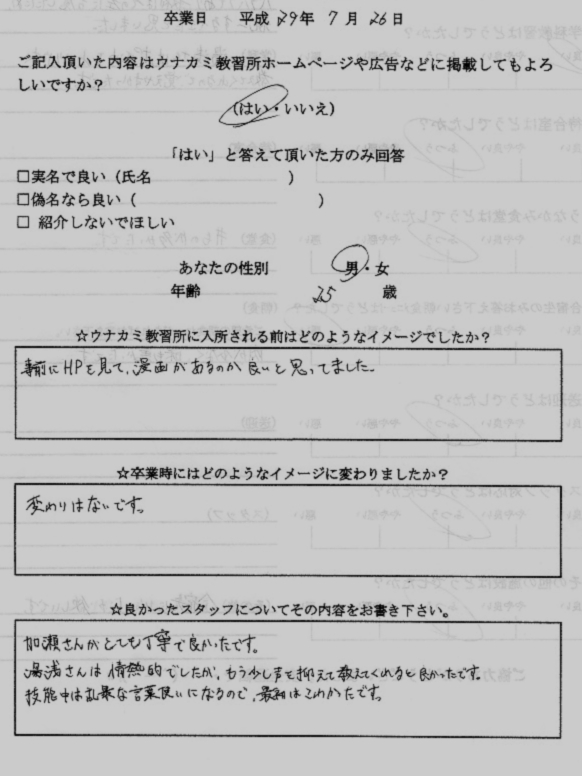 卒業日 平成 29年 7月 26日
ご記入頂いた内容はウナガミ教習所ホームページや広告などに掲載してもよろ
しいですか？
（はい・いいえ）
「はい」と答えて頂いた方のみ回答
□実名で良い（氏名 ）
□偽名なら良い（ ）
□ 紹介しないでほしい
あなたの性別 男・女
年齢 25 歳
☆ウナガミ教習所に入所される前はどのようなイメージでしたか？
事前にHPを見て、漫画があるのが良いと思ってました。
☆卒業時にはどのようなイメージに変わりましたか？
変わりはないです。
☆良かったスタッフについてその内容をお書き下さい。
加瀬さんがとても丁寧で良かったです。
湯浅さんは情熱的でしたが、もう少し声を抑えて教えてくれると良かったです。
技能中は乱暴な言葉使いになるので、最初はこわかったです。